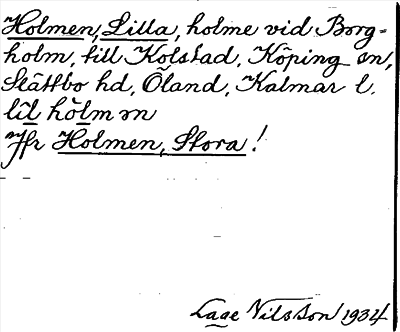 Holmen, Lilla, holme vid Borg-
holm, till Kolstad, Köping sn,
Slättbo hd, Öland, Kalmar l.
lil hòlm ən
Jfr Holmen, Stora!
Lage Nilsson 1934